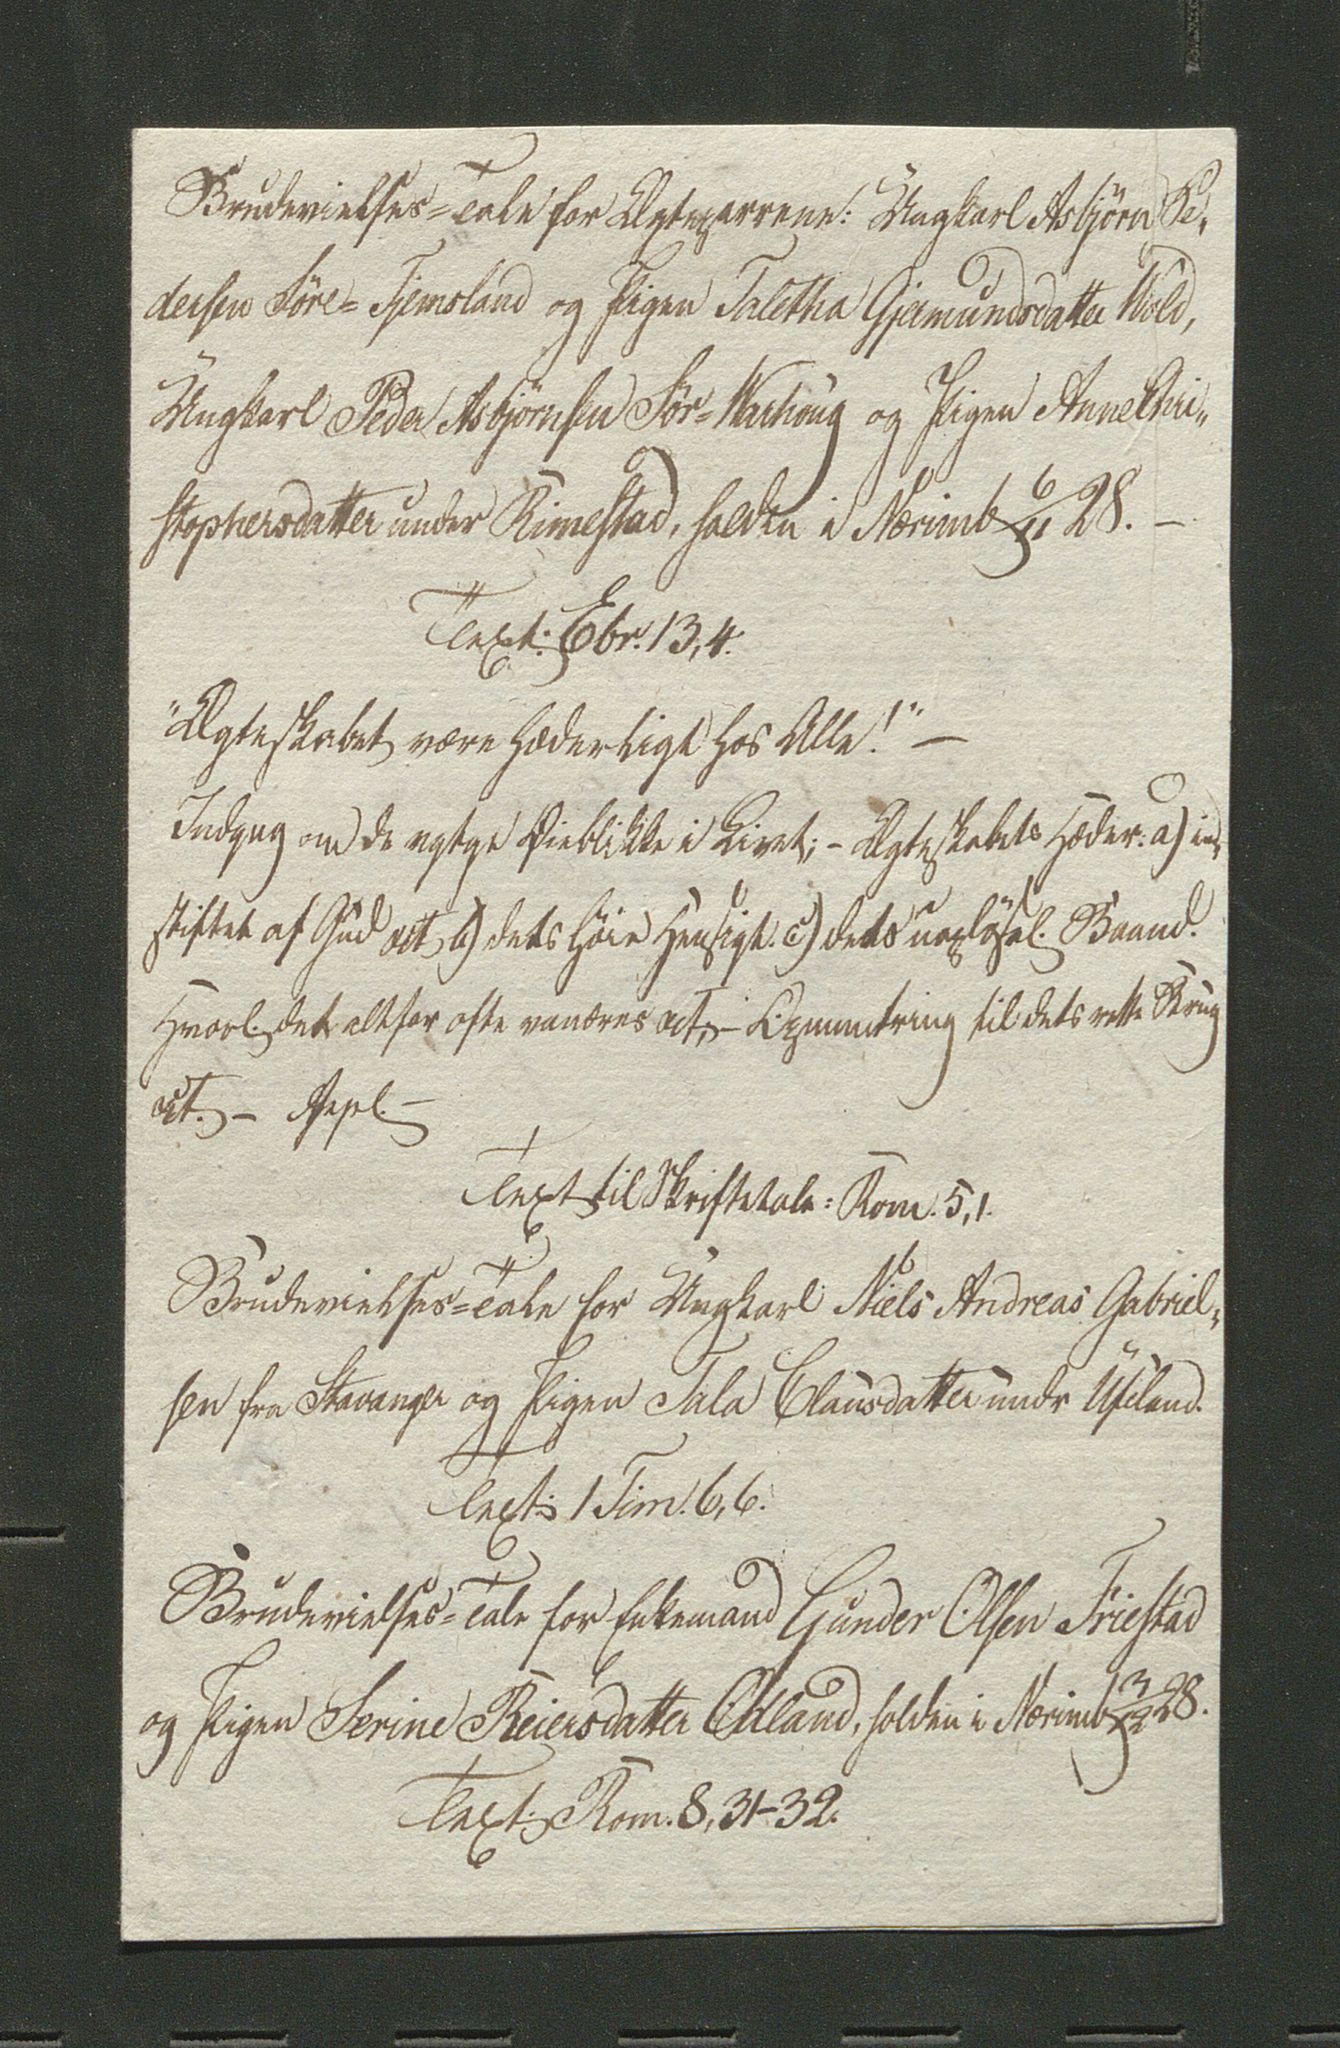 Brudevielses=Tale for Ægteparrene: Ungkarl Asbjörn Pe-
dersen Söre=Tjemsland og Pigen Taletha Gjermundsdatter Wold,
Ungkarl Peder Asbjörnsen Sör=Warhoug og Pigen Anne Chri-
stophersdatter under Rimestad, holden i Nærimb 6/11 28. –
Text: Ebr. 13,4.
"Ægteskabet være hæderligt hos Alle!" –
Indgng om de vgtge Øieblikke i Livet; – Ægteskabets Hæder: a) ind-
stiftet af Gud oct b) dets høie Hensigt. c) dets uopløsel. Baand.
Hvorl. det altfor ofte vanæres oct; – Opmuntring til dets rette Brug
oct. – Appl. –
Text til Skriftetale: Rom. 5,1.
Brudevielses=Tale for Ungkarl Niels Andreas Gabriel-
sen fra Stavanger og Pigen Tala Clausdatter undr Ueland.
Text: 1 Tim. 6,6.
Brudevielses=Tale for Enkemand Gunder Olsen Friestad
og Pigen Serine Reiersdatter Ødland, holden i Nærimb 3/12 28.
Text: Rom. 8,31–32.